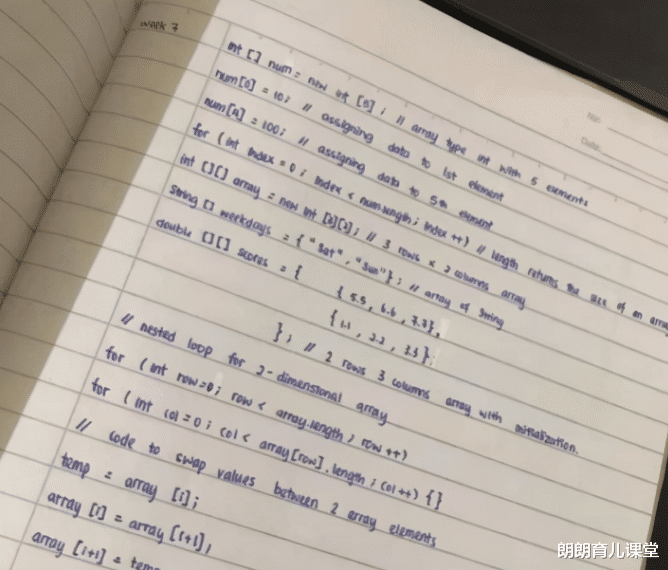 week 7
No:
Date:
int [] num = new int [5] ; // array type int with 5 elements
num[0] = 10; // assigning data to 1st element
num[4] = 100; // assigning data to 5th element
for ( int index = 0 ; index < num.length ; index ++) // length returns the size of an array
int [][] array = new int [3][2]; // 3 rows x 2 columns array
string [] weekdays = { "Sat", "Sun"}; // array of string
double [][] scores = { { 5.5, 6.6, 7.7},
{ 1.1, 2.2, 3.3}.
} ; // 2 rows 3 columns array with initialization.
// nested loop for 2-dimensional array
for ( int row=0; row < array.length ; row ++)
for ( int col = 0 ; col < array[row].length ; col ++) { }
// code to swap values between 2 array elements
temp = array [i];
array [i] = array [i+1],
array [i+1] = temp
朗朗育儿课堂